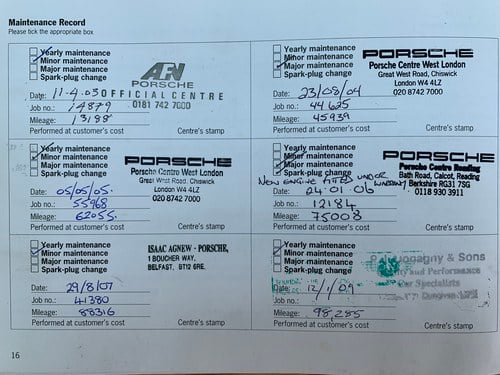 Maintenance Record
Please tick the appropriate box.
Yearly maintenance
Minor maintenance
Major maintenance
Spark-plug change
AFN
PORSCHE
OFFICIAL CENTRE
0181 742 7000
Date: 11-4-03
Job no.: 14879
Mileage: 13188
Performed at customer's cost
Centre's stamp
Yearly maintenance
Minor maintenance
Major maintenance
Spark-plug change
PORSCHE
Porsche Centre West London
Great West Road, Chiswick
London W4 4LZ
020 8742 7000
Date: 23/08/04
Job no.: 44625
Mileage: 45939
Performed at customer's cost
Centre's stamp
Yearly maintenance
Minor maintenance
Major maintenance
Spark-plug change
PORSCHE
Porsche Centre West London
Great West Road, Chiswick
London W4 4LZ
020 8742 7000
Date: 05/05/05.
Job no.: 55968
Mileage: 62055.
Performed at customer's cost
Centre's stamp
Yearly maintenance
Minor maintenance
Major maintenance
Spark-plug change
PORSCHE
Porsche Centre Reading
Bath Road, Calcot, Reading
Berkshire RG31 7SG
0118 930 3911
NEW ENGINE FITTED UNDER WARRANTY
Date: 24.01.06
Job no.: 12184
Mileage: 75008
Performed at customer's cost
Centre's stamp
Yearly maintenance
Minor maintenance
Major maintenance
Spark-plug change
ISAAC AGNEW - PORSCHE,
1 BOUCHER WAY,
BELFAST, BT12 6RE.
Date: 29/8/07
Job no.: 41380
Mileage: 88316
Performed at customer's cost
Centre's stamp
Yearly maintenance
Minor maintenance
Major maintenance
Spark-plug change
& Sons
and Performance
Specialists
Dungiven
Date: 12/1/09
Job no.:
Mileage: 98,285
Performed at customer's cost
Centre's stamp
16